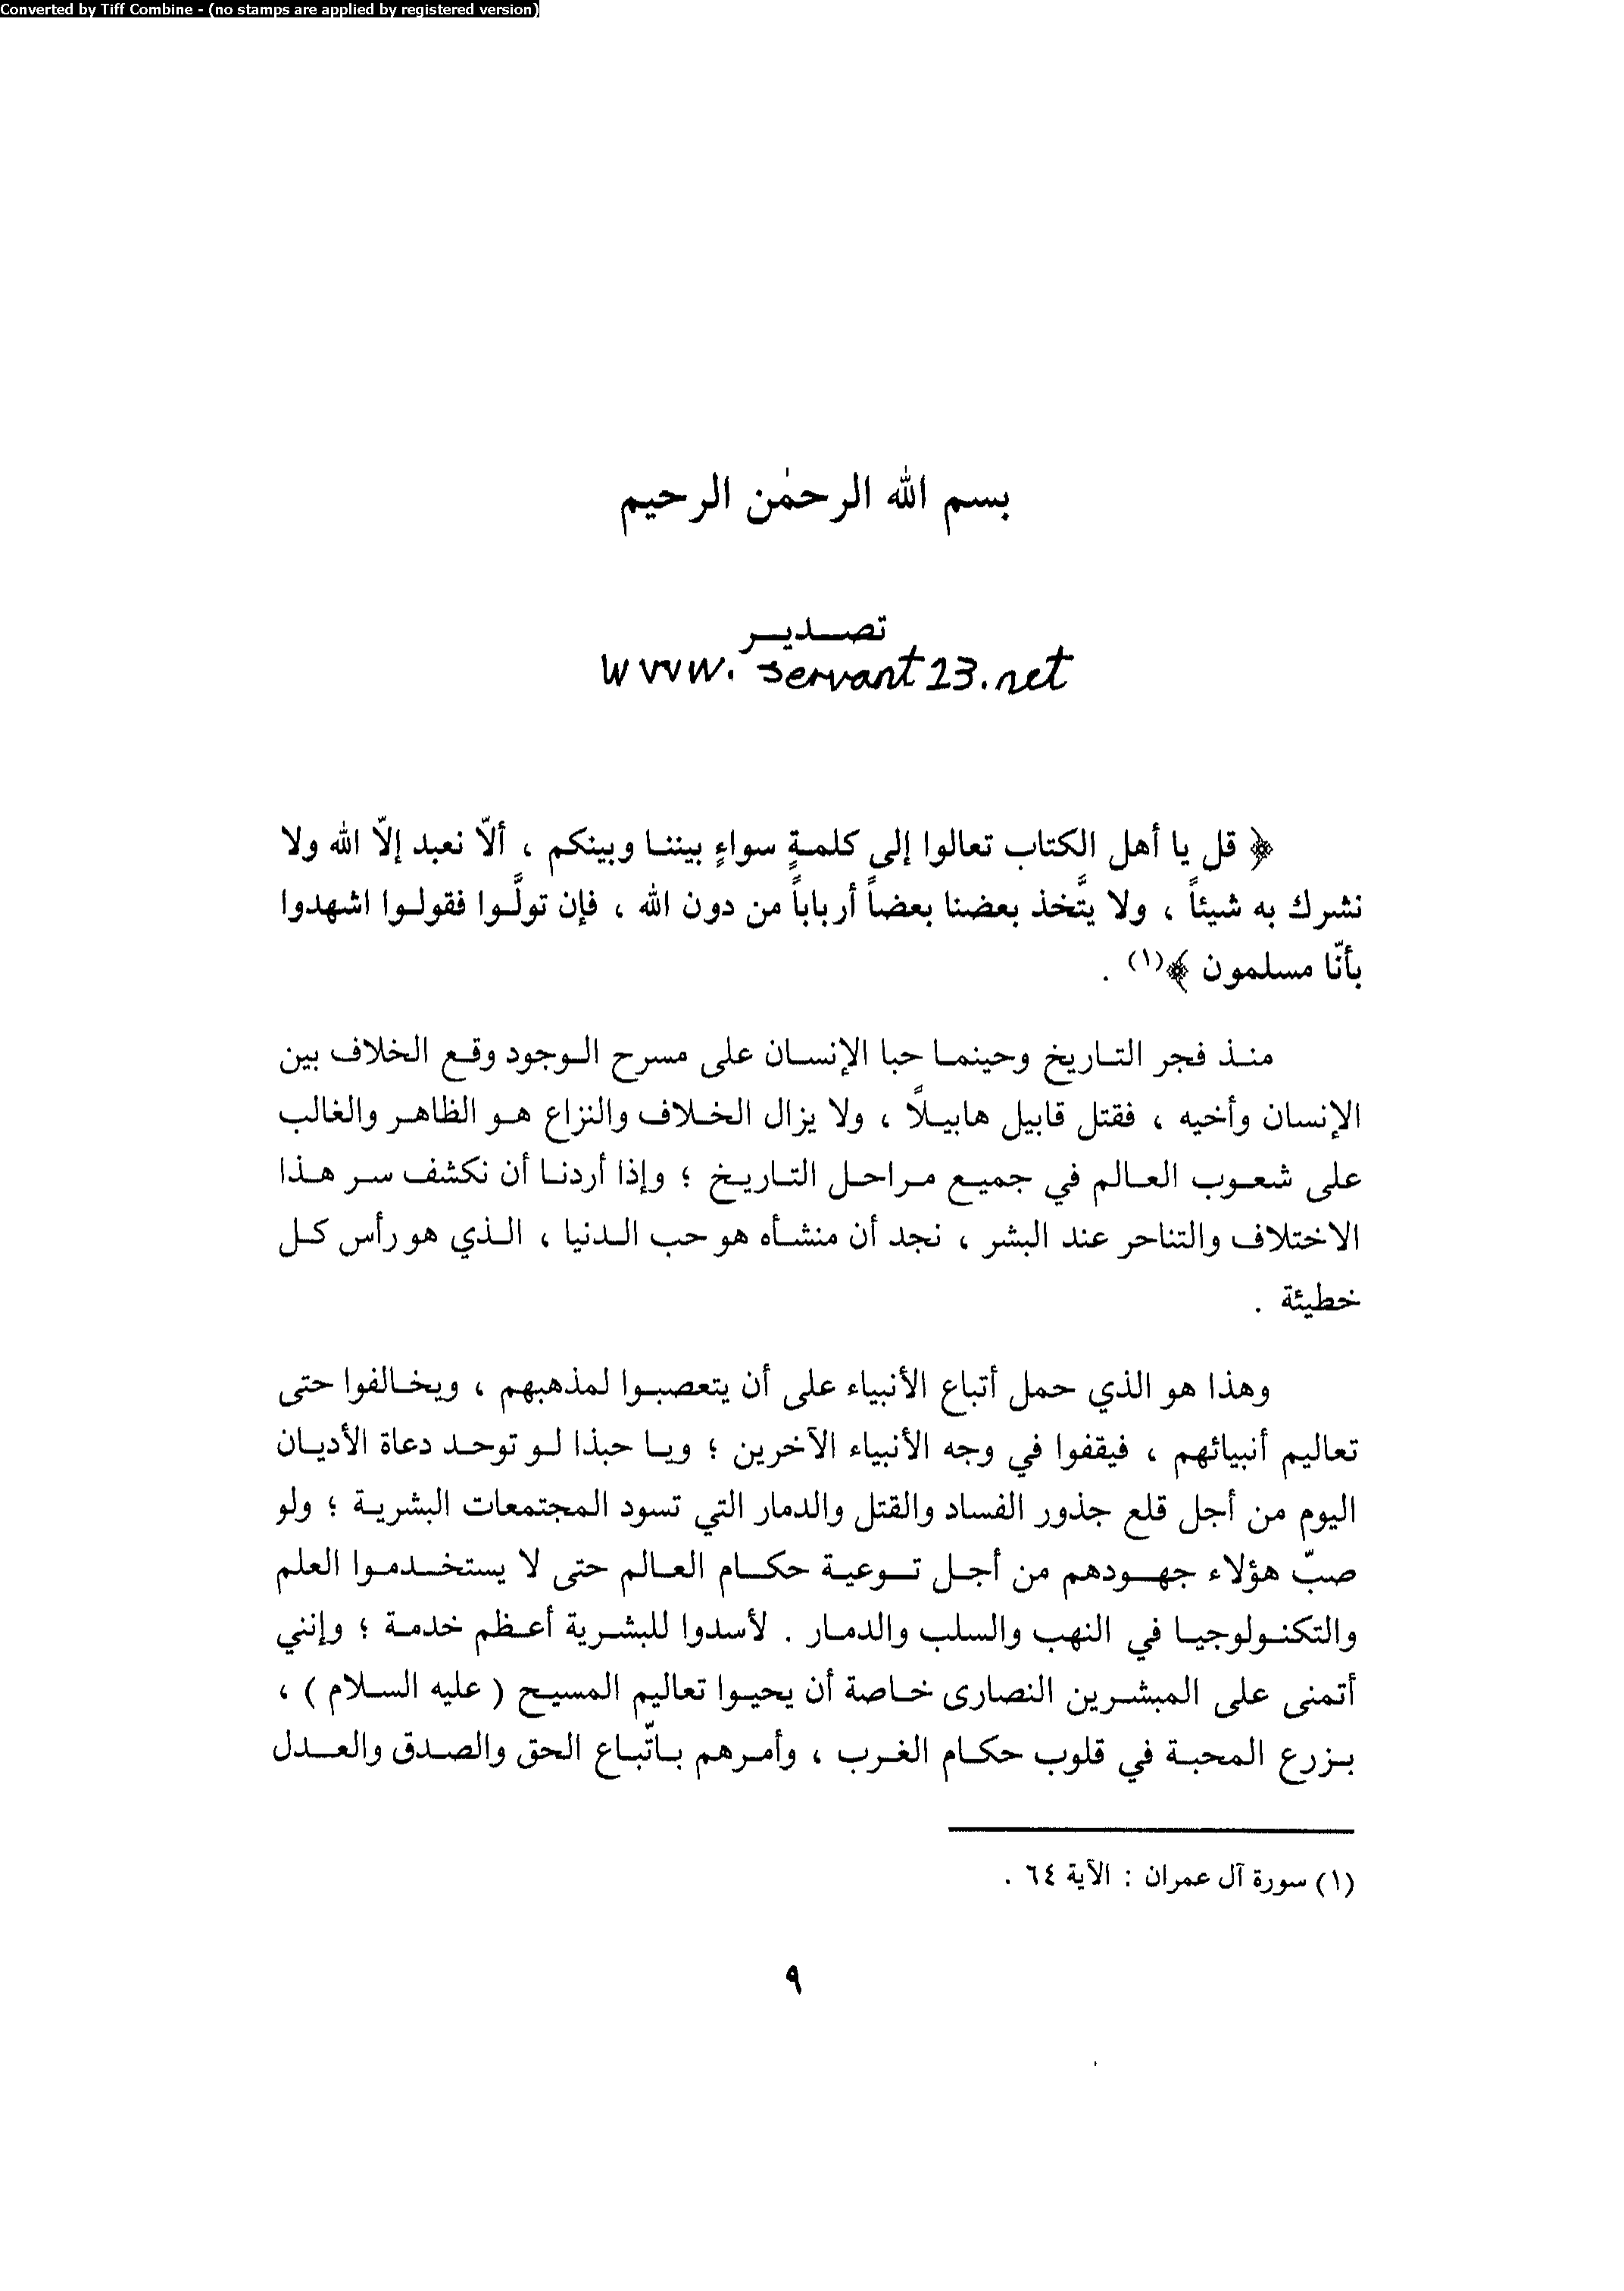 Converted by Tiff Combine - (no stamps are applied by registered version)
بسم الله الرحمٰن الرحيم
تصـديـر
www.servant23.net
﴿ قل يا أهل الكتاب تعالوا إلى كلمةٍ سواءٍ بيننا وبينكم ، ألاّ نعبد إلاّ الله ولا
نشرك به شيئاً ، ولا يتَّخذ بعضنا بعضاً أرباباً من دون الله ، فإن تولَّوا فقولوا اشهدوا
بأنّا مسلمون ﴾(١) .
منذ فجر التاريخ وحينما حبا الإنسان على مسرح الوجود وقع الخلاف بين
الإنسان وأخيه ، فقتل قابيل هابيلاً ، ولا يزال الخلاف والنزاع هو الظاهر والغالب
على شعوب العالم في جميع مراحل التاريخ ؛ وإذا أردنا أن نكشف سر هذا
الاختلاف والتناحر عند البشر ، نجد أن منشأه هو حب الدنيا ، الذي هو رأس كل
خطيئة .
وهذا هو الذي حمل أتباع الأنبياء على أن يتعصبوا لمذهبهم ، ويخالفوا حتى
تعاليم أنبيائهم ، فيقفوا في وجه الأنبياء الآخرين ؛ ويا حبذا لو توحد دعاة الأديان
اليوم من أجل قلع جذور الفساد والقتل والدمار التي تسود المجتمعات البشرية ؛ ولو
صبّ هؤلاء جهودهم من أجل توعية حكام العالم حتى لا يستخدموا العلم
والتكنولوجيا في النهب والسلب والدمار . لأسدوا للبشرية أعظم خدمة ؛ وإنني
أتمنى على المبشرين النصارى خاصة أن يحيوا تعاليم المسيح ( عليه السلام ) ،
بزرع المحبة في قلوب حكام الغرب ، وأمرهم باتّباع الحق والصدق والعدل
(١) سورة آل عمران : الآية ٦٤ .
٩